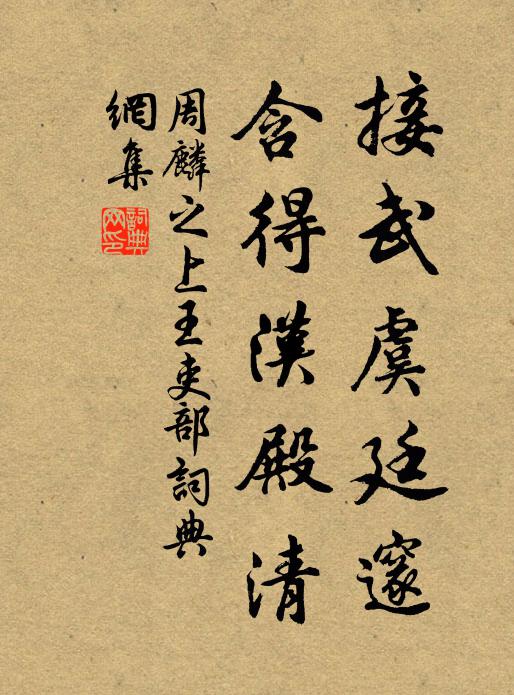 接武虞廷邃
含得漢殿清
周麟之上王吏部詞典
網集
詞典
网印